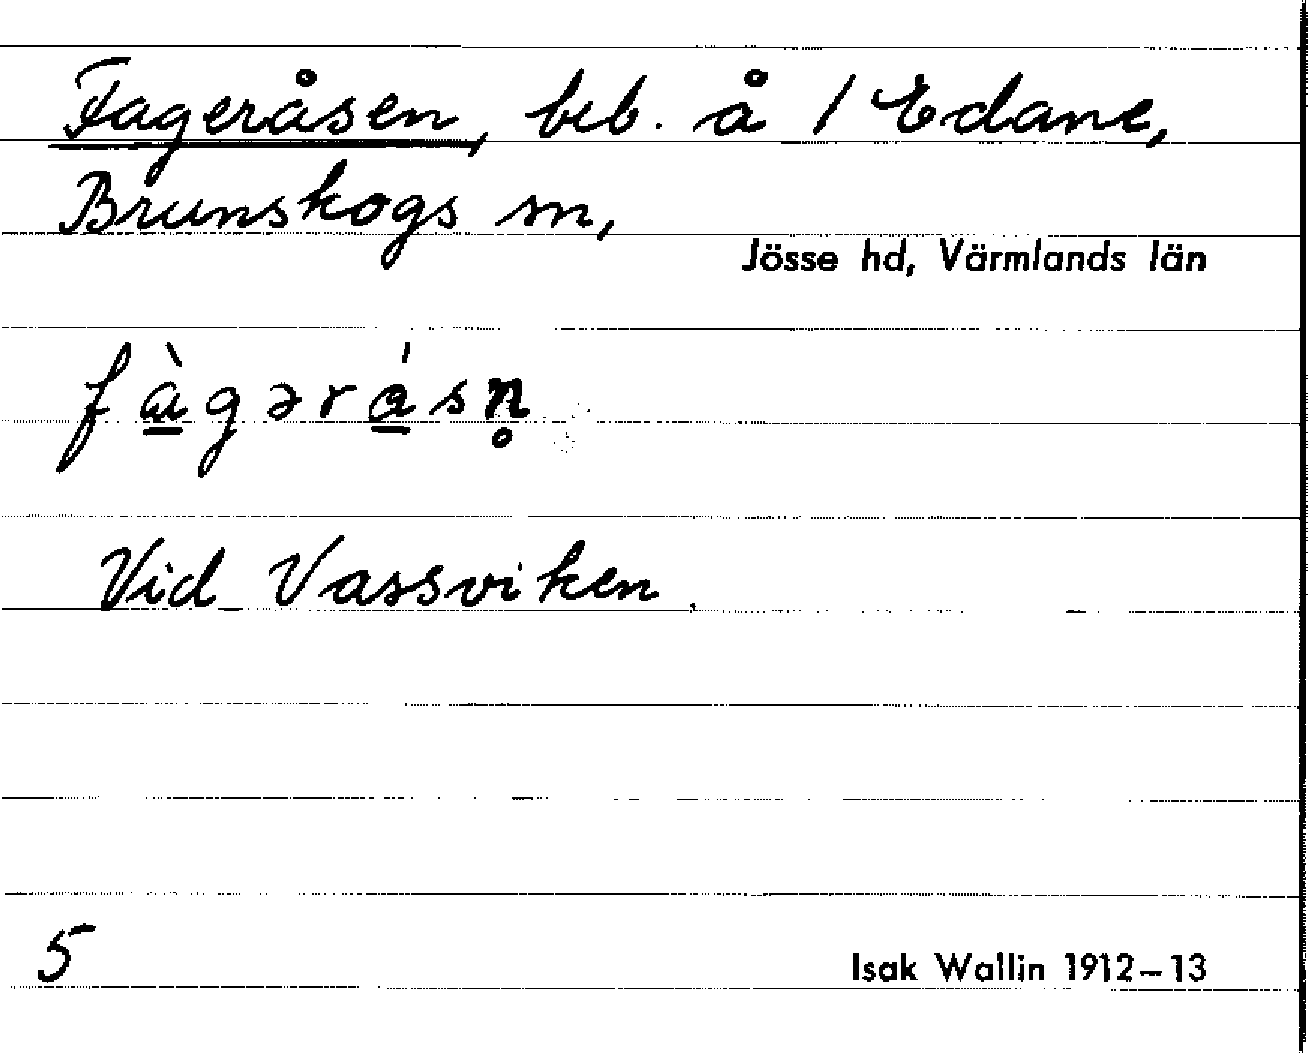 Fageråsen, beb. å 1 Edane,
Brunskogs sn,
Jösse hd, Värmlands län
fà̲gərá̲sn̥
Vid Vassviken.
5
Isak Wallin 1912–13